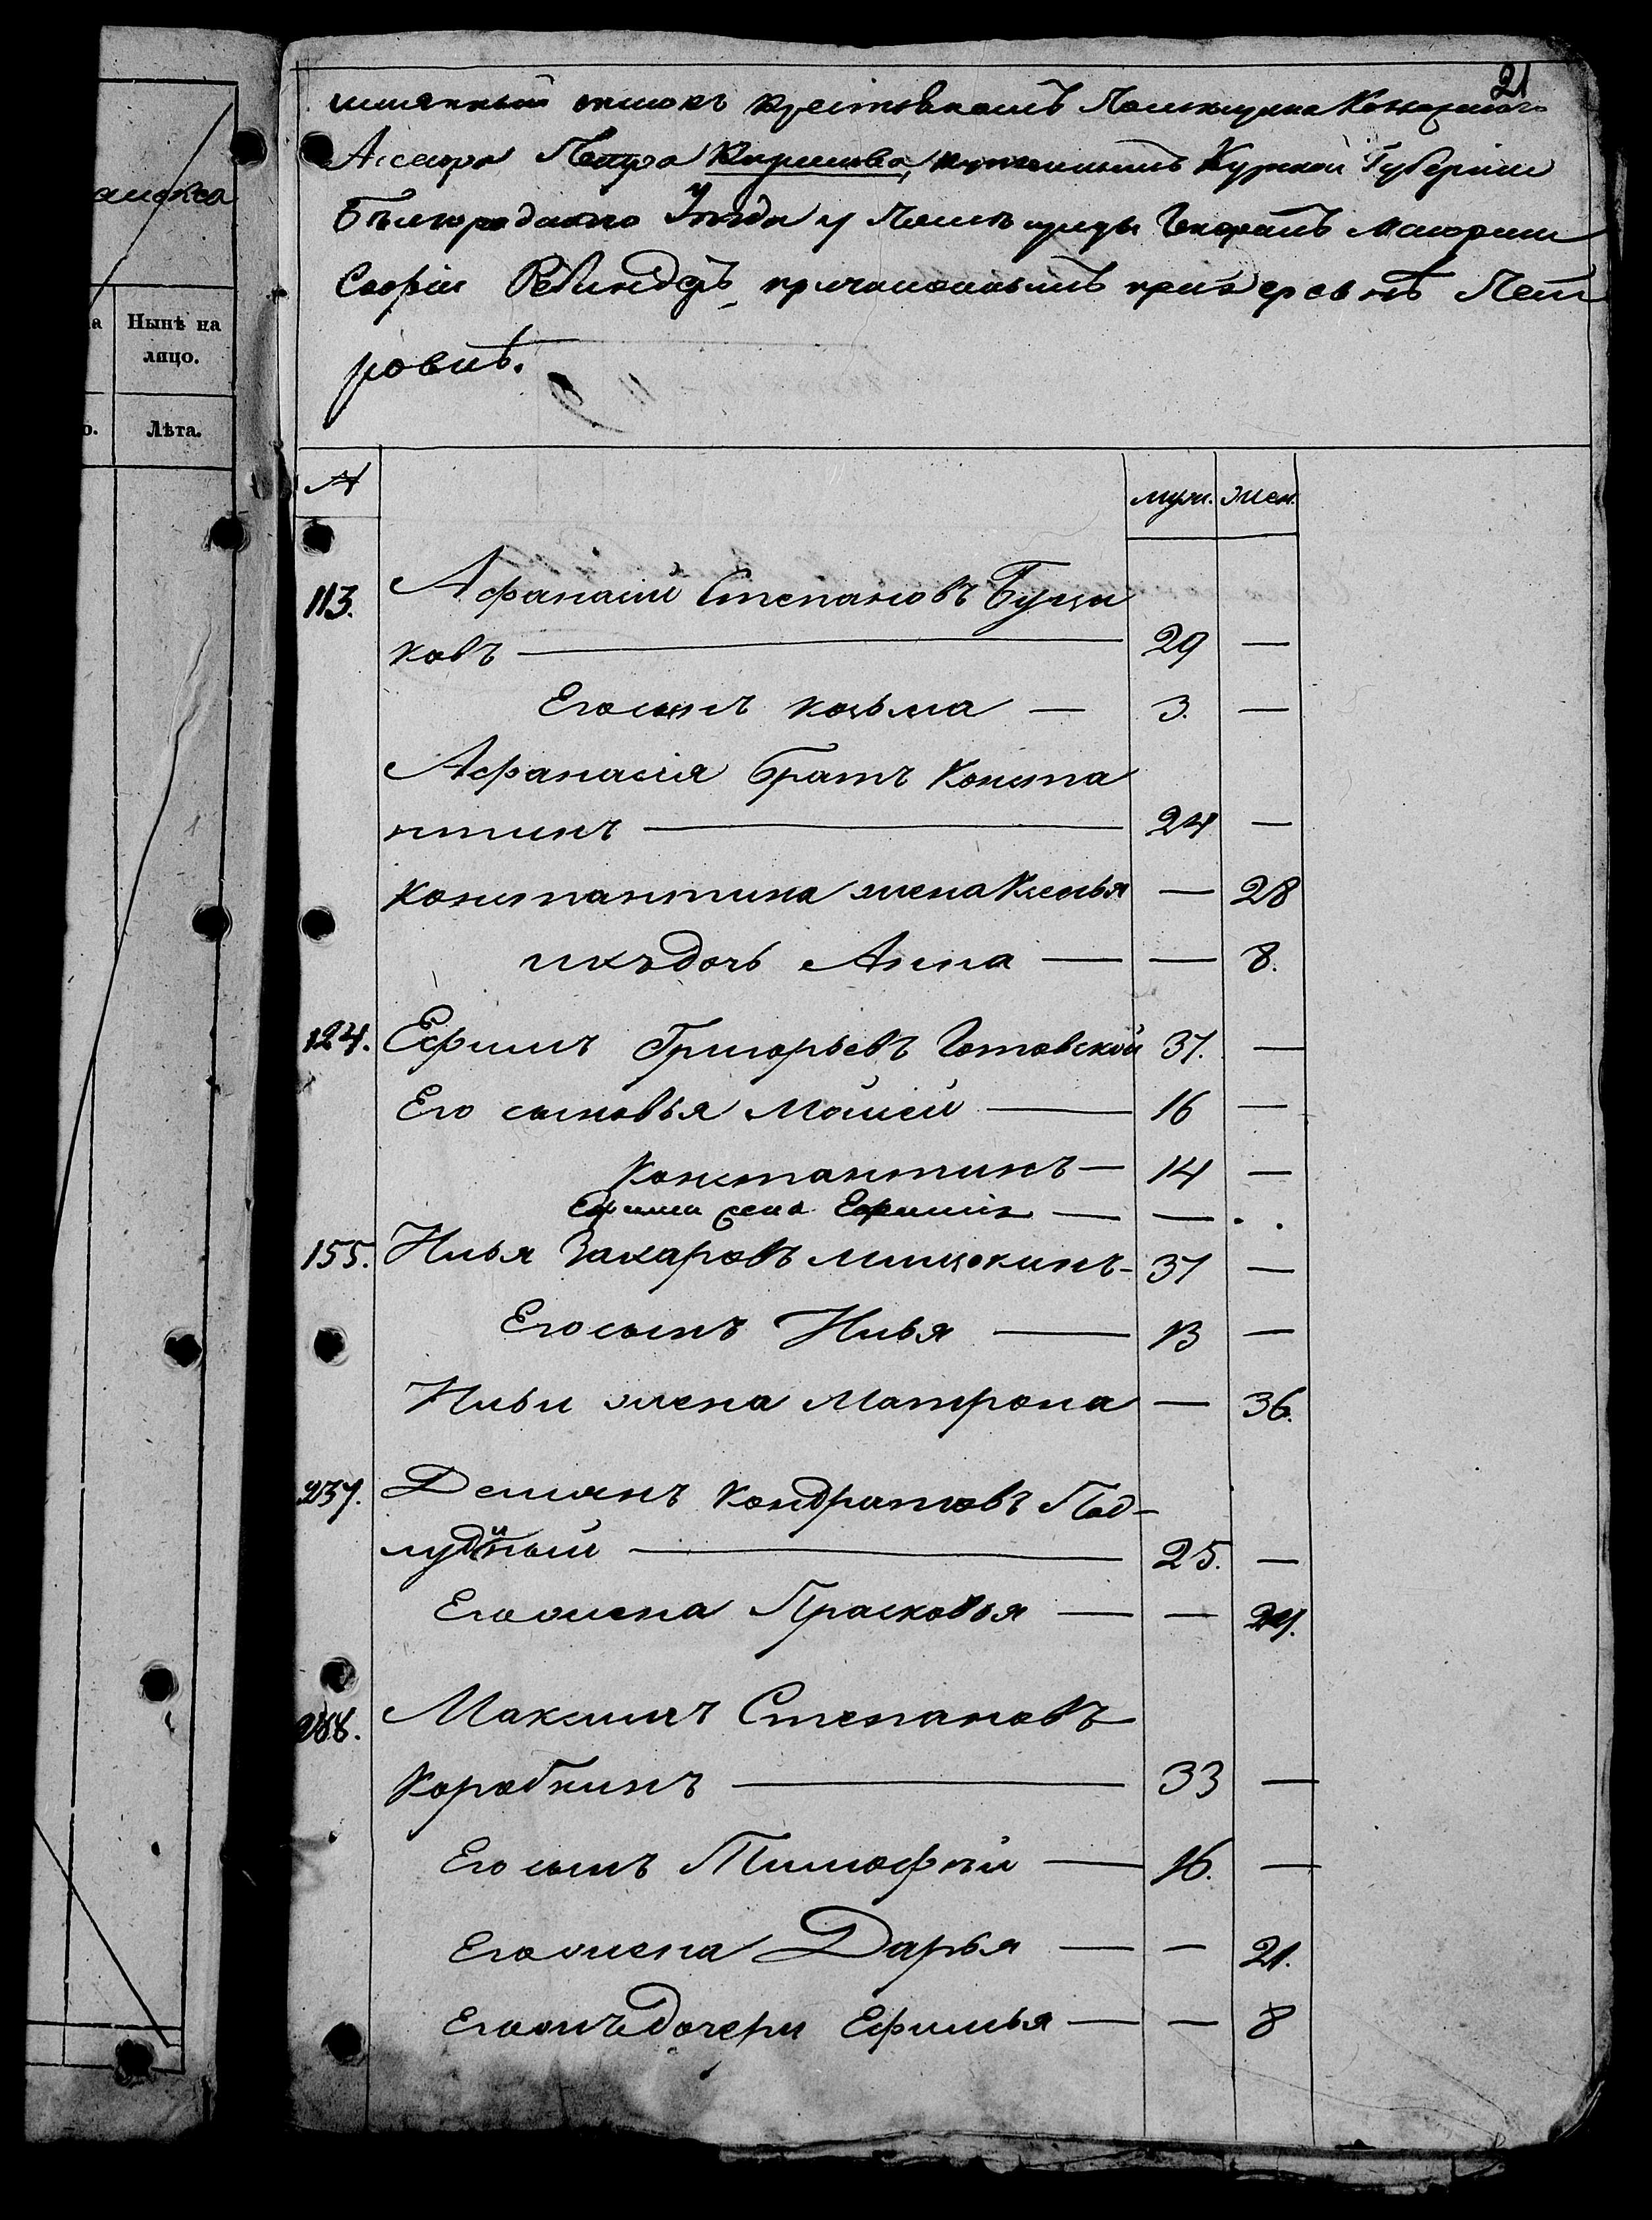 21
именный списокъ крестьянамъ Помещика Коллежского
Асесора Петра Кирилова, купленнымъ Курской Губернии
Бѣлгородского Уѣзда у Помѣщицы Генералъ Маіорши
Софіи Ребиндеръ, причисленнымъ при деревнѣ Пет
ровкѣ.
аиска
а Нынѣ на
лицо.
о. Лѣта.
№ муж. жен.
113. Афанасий Степановъ Бущи
ковъ — 29 —
Его сынъ козьма — 3. —
Афанасия братъ Конста
нтинъ — 24 —
Константина жена — 28
ихъ дочь Анна — — 8.
124. Ефимъ Григорьевъ Готовской 37. —
Его сыновья Мойсей — 16 —
Константинъ — 14 —
Ефима жена —
155. Илья Захаровъ 37 —
Его сынъ Илья — 13 —
Ильи жена Матрона — 36.
237. Демьянъ Кондратовъ Под-
лудный — 25. —
Его жена Прасковья — — 24.
288. Максимъ Степановъ
Коробкинъ — 33 —
Его сынъ Тимофѣй — 16. —
Его жена Дарья — — 21.
дочери Ефимья — — 8